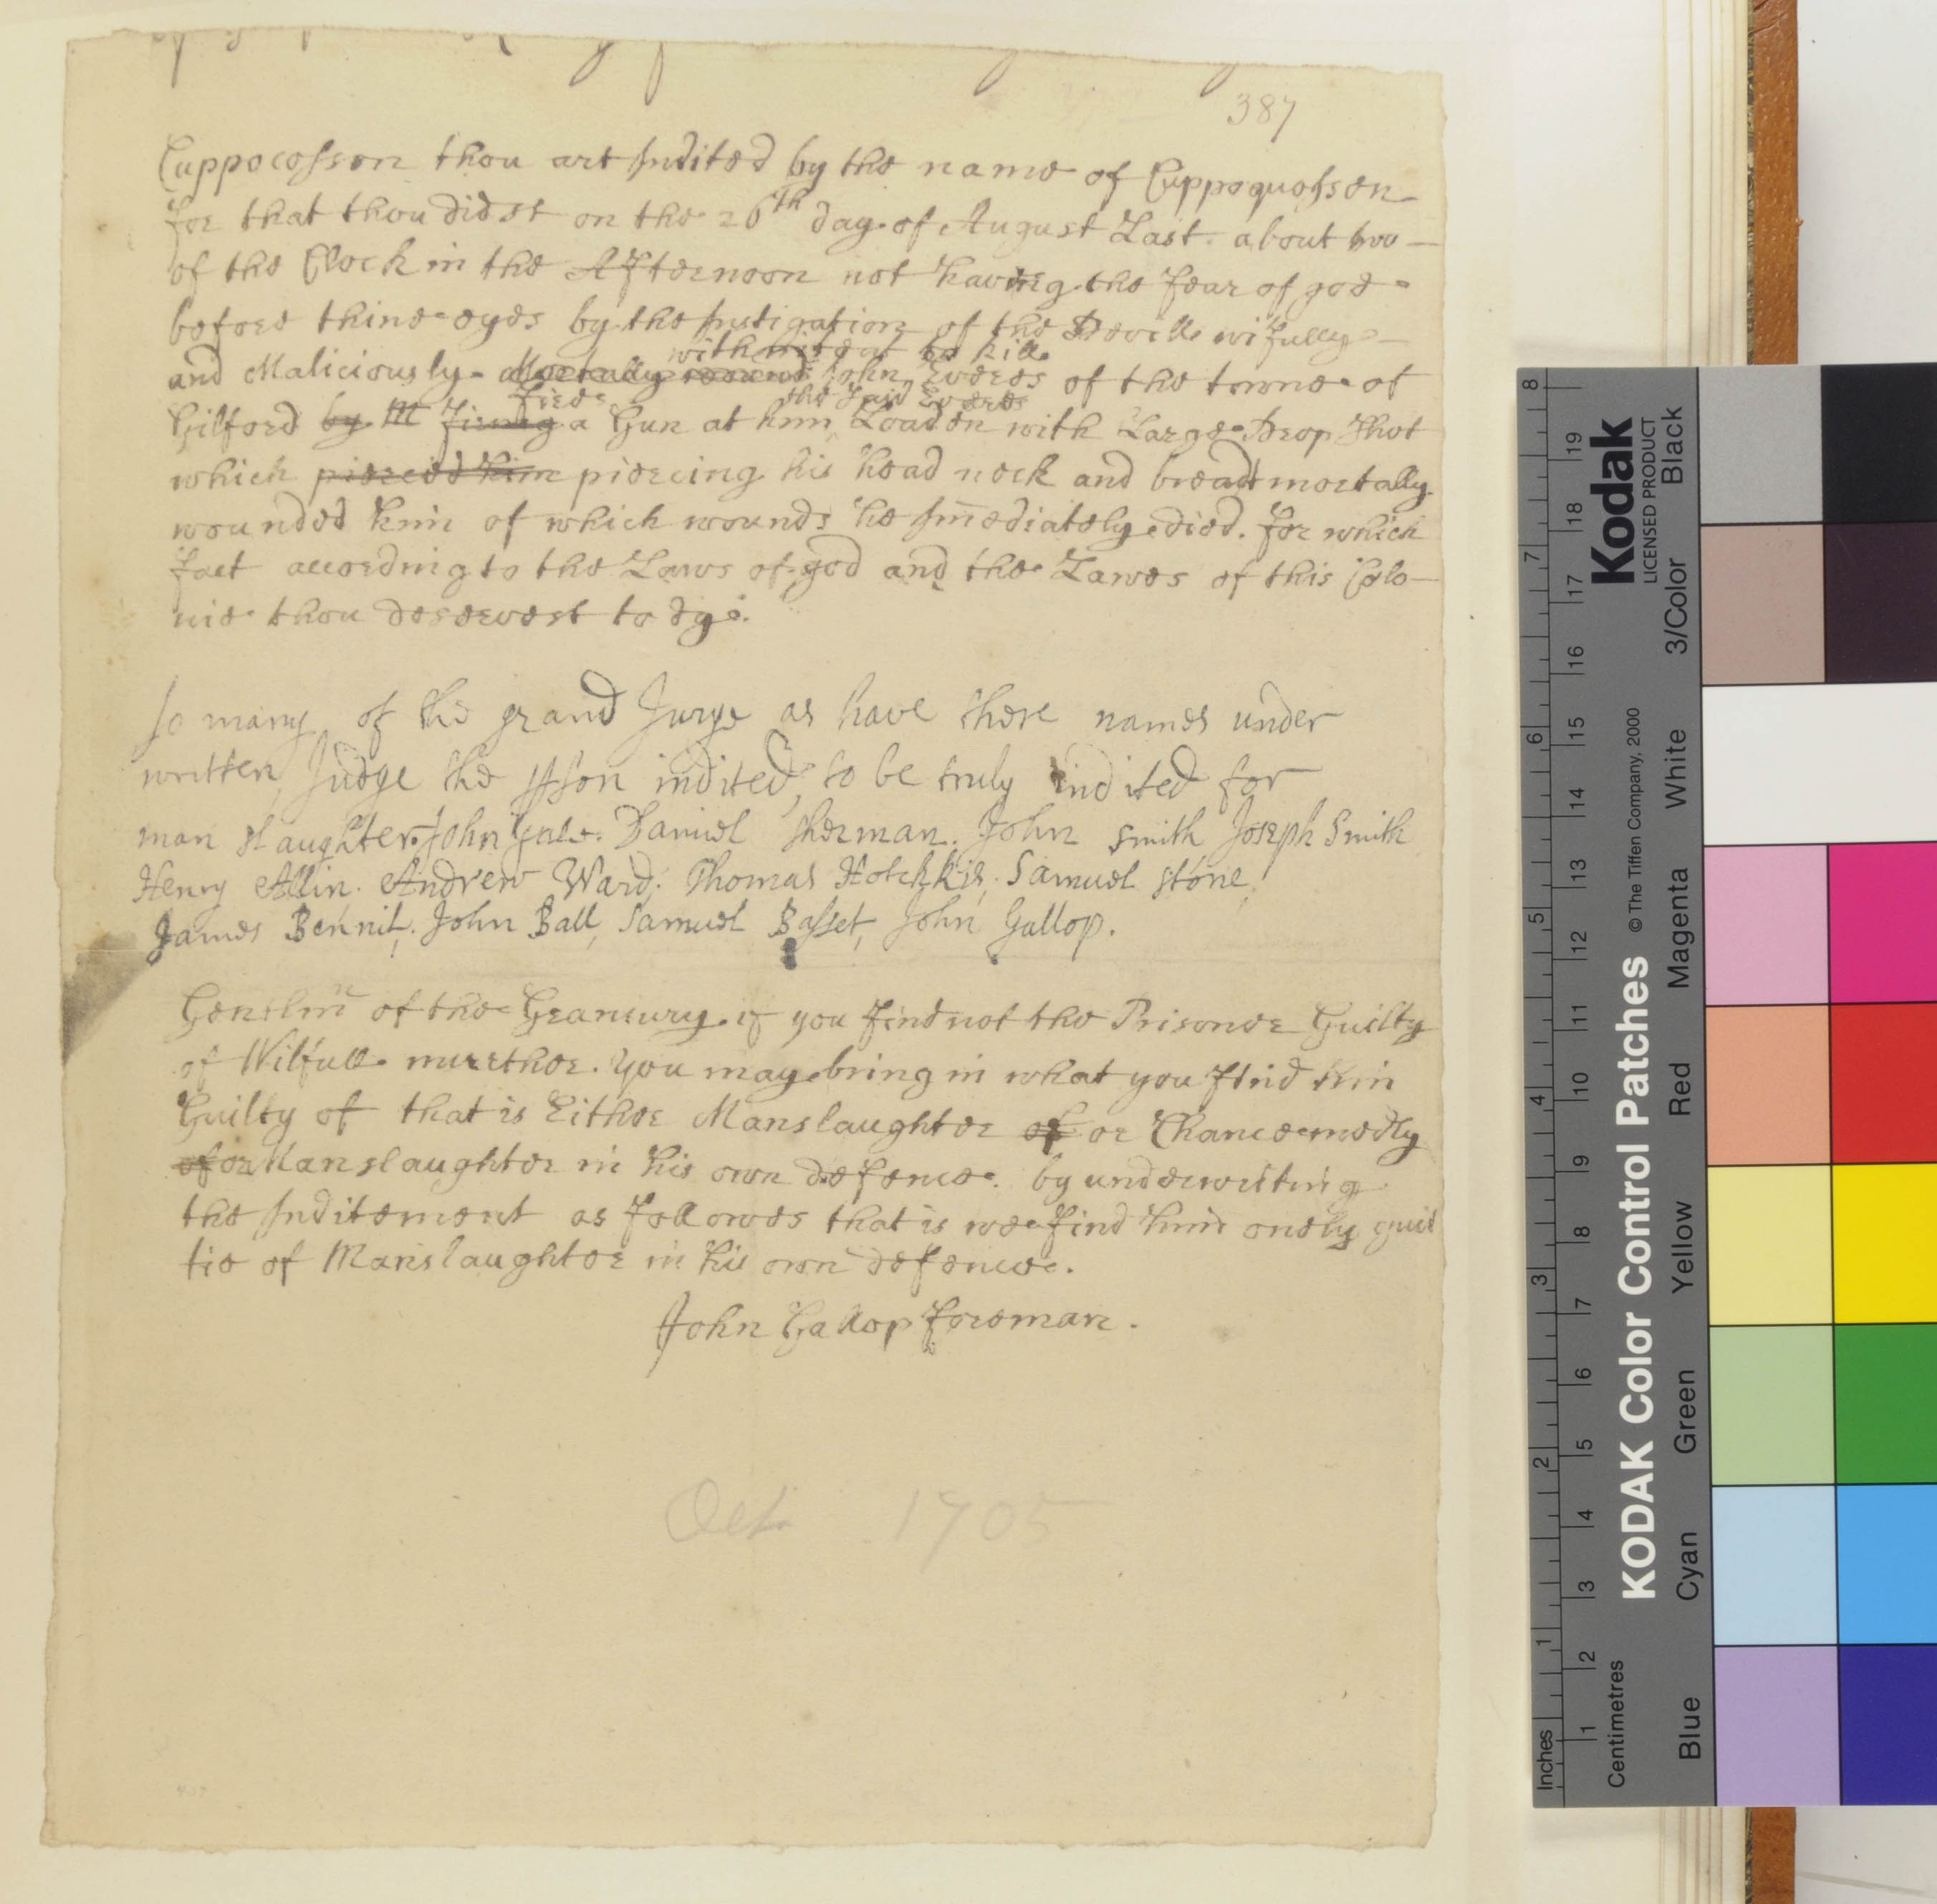 387
Cuppocosson thou art Indited by the name of Cuppoquosson
for that thou didst on the 26th day of August Last about two
of the Clock in the Afternoon not having the fear of god
before thine eyes by the Instigation of the Devill wifully
with intent to kill
and Maliciously Mortally wound John Everes of the towne of
fired the said Evered
Gilford by M firing a Gun at him Loaden with Large Drop Shot
which pierced him piercing his head neck and breast mortally
wounded him of which wounds he Immediately died. for which
fact according to the Laws of god and the Lawes of this Colo
nie thou deservest to dye.
So many of the grand Jurye as have there names under
written Judge the pson indited to be truly indited for
man slaughter John Daniel Sherman. John Smith Joseph Smith
Henry Allin. Andrew Ward. Thomas Hotchkis. Samuel stone
James Bennit. John Ball, Samuel Basset, John Gallop.
Gentlmn of the Granjury if you find not the Prisoner Guilty
of Wilfull murther. You may bring in what you find him
Guilty of that is Either Manslaughter of or Chancemedly
of or Manslaughter in his own defence. by underwriting
the Inditement as followes that is wee find him onely guil
tie of Manslaughter in his own defence.
John Gallop foreman.
Oct 1705
Kodak
LICENSED PRODUCT
KODAK Color Control Patches
© The Tiffen Company, 2000
Black
3/Color
White
Magenta
Red
Yellow
Green
Cyan
Blue
Inches 1 2 3 4 5 6 7 8
Centimetres 1 2 3 4 5 6 7 8 9 10 11 12 13 14 15 16 17 18 19